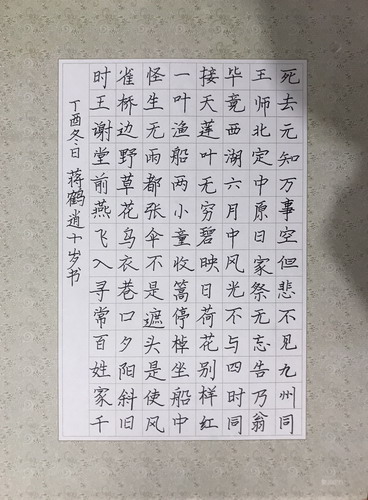 死去元知万事空但悲不见九州同
王师北定中原日家祭无忘告乃翁
毕竟西湖六月中风光不与四时同
接天莲叶无穷碧映日荷花别样红
一叶渔船两小童收篙停棹坐船中
怪生无雨都张伞不是遮头是使风
雀桥边野草花鸟衣巷口夕阳斜旧
时王谢堂前燕飞入寻常百姓家千
丁酉冬日 蒋鹤逍十岁书